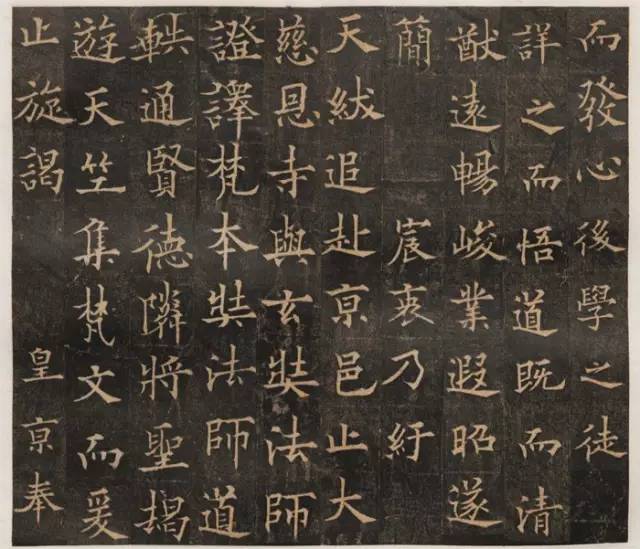 而發心後學之徒
詳之而悟道既而清
猷遠暢峻業遐昭遂
簡 宸衷乃紆
天紱追赴亰邑止大
慈恩寺與玄奘法師
證譯梵本奘法師道
軼通賢德隣將聖朅
遊天竺集梵文而爰
止旋謁 皇亰奉